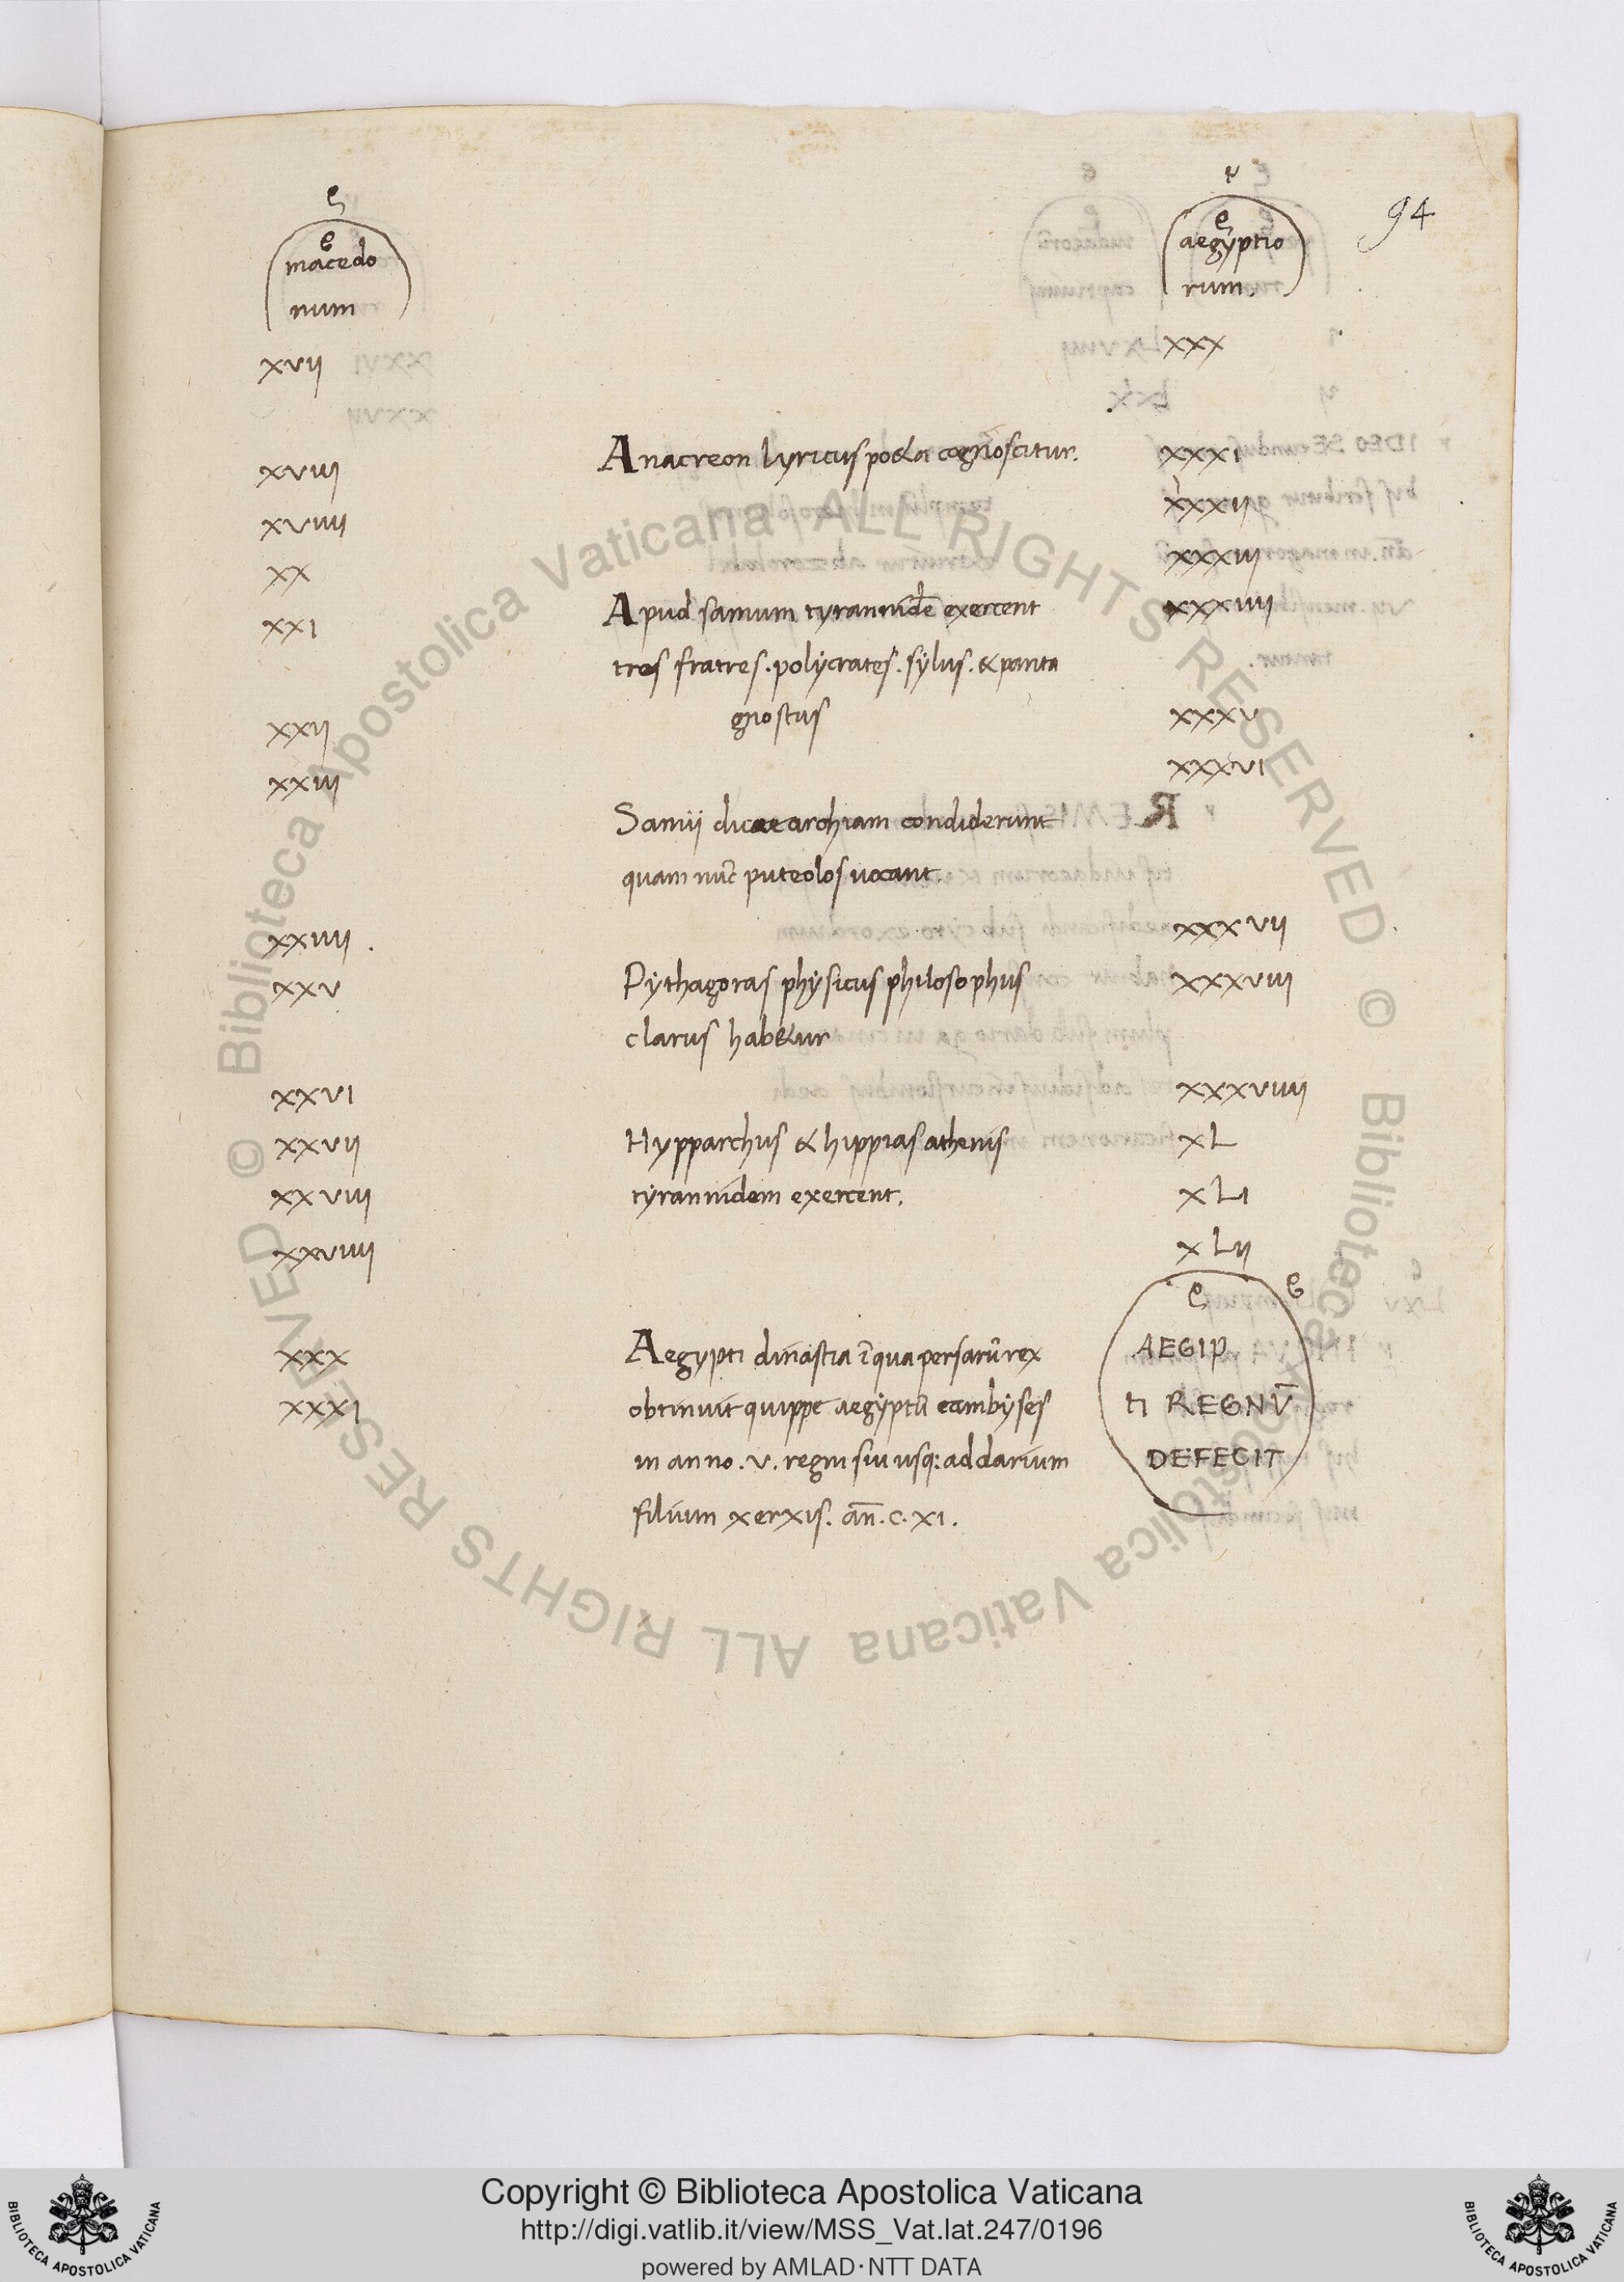 94
e
e
macedo
num
e
aegyptio
rum.
xvii
xxx
Anacreon lyricus po&a cognoscitur.
xxxi
xviii
xxxii
xviiii
xxxiii
xx
Apud samum tyrannidē exercent
xxxiiii
xxi
tres fratres. polycrates. sylus. & panta
gnostus
xxxv
xxii
xxxvi
xxiii
Samii dicaearchiam condiderunt
quam nūc puteolos uocant.
xxxvii
xxiiii.
xxv
Pythagoras physicus philosophus
xxxviii
clarus hab&ur
xxvi
xxxviiii
xxvii
Hypparchus & hippias athenis
xL
xxviii
tyrannidem exercent.
xLi
xxviiii
xLii
e
e
xxx
Aegypti dinastia īqua persarū rex
AEGIP
xxxi
obtinuit quippe aegyptū cambyses
ti REGNV̄
in anno. v. regni sui usq: ad darium
DEFECIT
filium xerxis. an̄. c. xi.
© Biblioteca Apostolica Vaticana ALL RIGHTS RESERVED
© Biblioteca Apostolica Vaticana ALL RIGHTS RESERVED
BIBLIOTECA APOSTOLICA VATICANA
Copyright © Biblioteca Apostolica Vaticana
http://digi.vatlib.it/view/MSS_Vat.lat.247/0196
powered by AMLAD·NTT DATA
BIBLIOTECA APOSTOLICA VATICANA